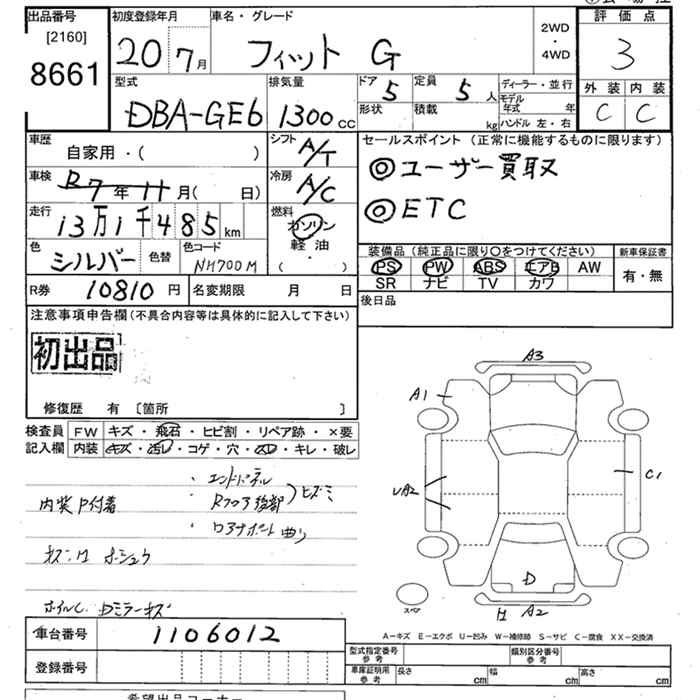 出品番号
[2160]
8661
初度登録年月
20 7月
車名・グレード
フィット G
2WD
・
4WD
評価点
3
外装 内装
C C
型式
DBA-GE6
排気量
1300cc
ドア 5
定員 5人
形状
積載 kg
ディーラー・並行
モデル年式 年
ハンドル 左・右
車歴
自家用・( )
シフト A/T
車検
R7年11月( 日)
冷房 A/C
走行
13万1千485km
燃料
ガソリン
軽油
・
( )
色
シルバー
色替
色コード
NH700M
セールスポイント (正常に機能するものに限ります)
◎ユーザー買取
◎ETC
装備品(純正品に限り〇をつけてください)
PS PW ABS エアB AW
SR ナビ TV カワ
新車保証書
有・無
R券 10810円
名変期限 月 日
後日品
注意事項申告欄(不具合内容等は具体的に記入して下さい)
初出品
修復歴 有 [箇所 ]
検査員
記入欄
FW キズ・飛石・ヒビ割・リペア跡・×要
内装 キズ・汚レ・コゲ・穴・スレ・キレ・破レ
・エンドパネル
Rフロア後部
ヒズミ
・ロアサポート曲リ
内装P付着
ホイルC. Dミラーキズ
車台番号
1106012
登録番号
A3
A1
UA2
C1
D
A2
スペア
A－キズ E－エクボ U－凹み W－補修跡 S－サビ C－腐食 XX－交換済
型式指定番号
参考
類別区分番号
参考
車庫証明用
参考
長さ cm
幅 cm
高さ cm